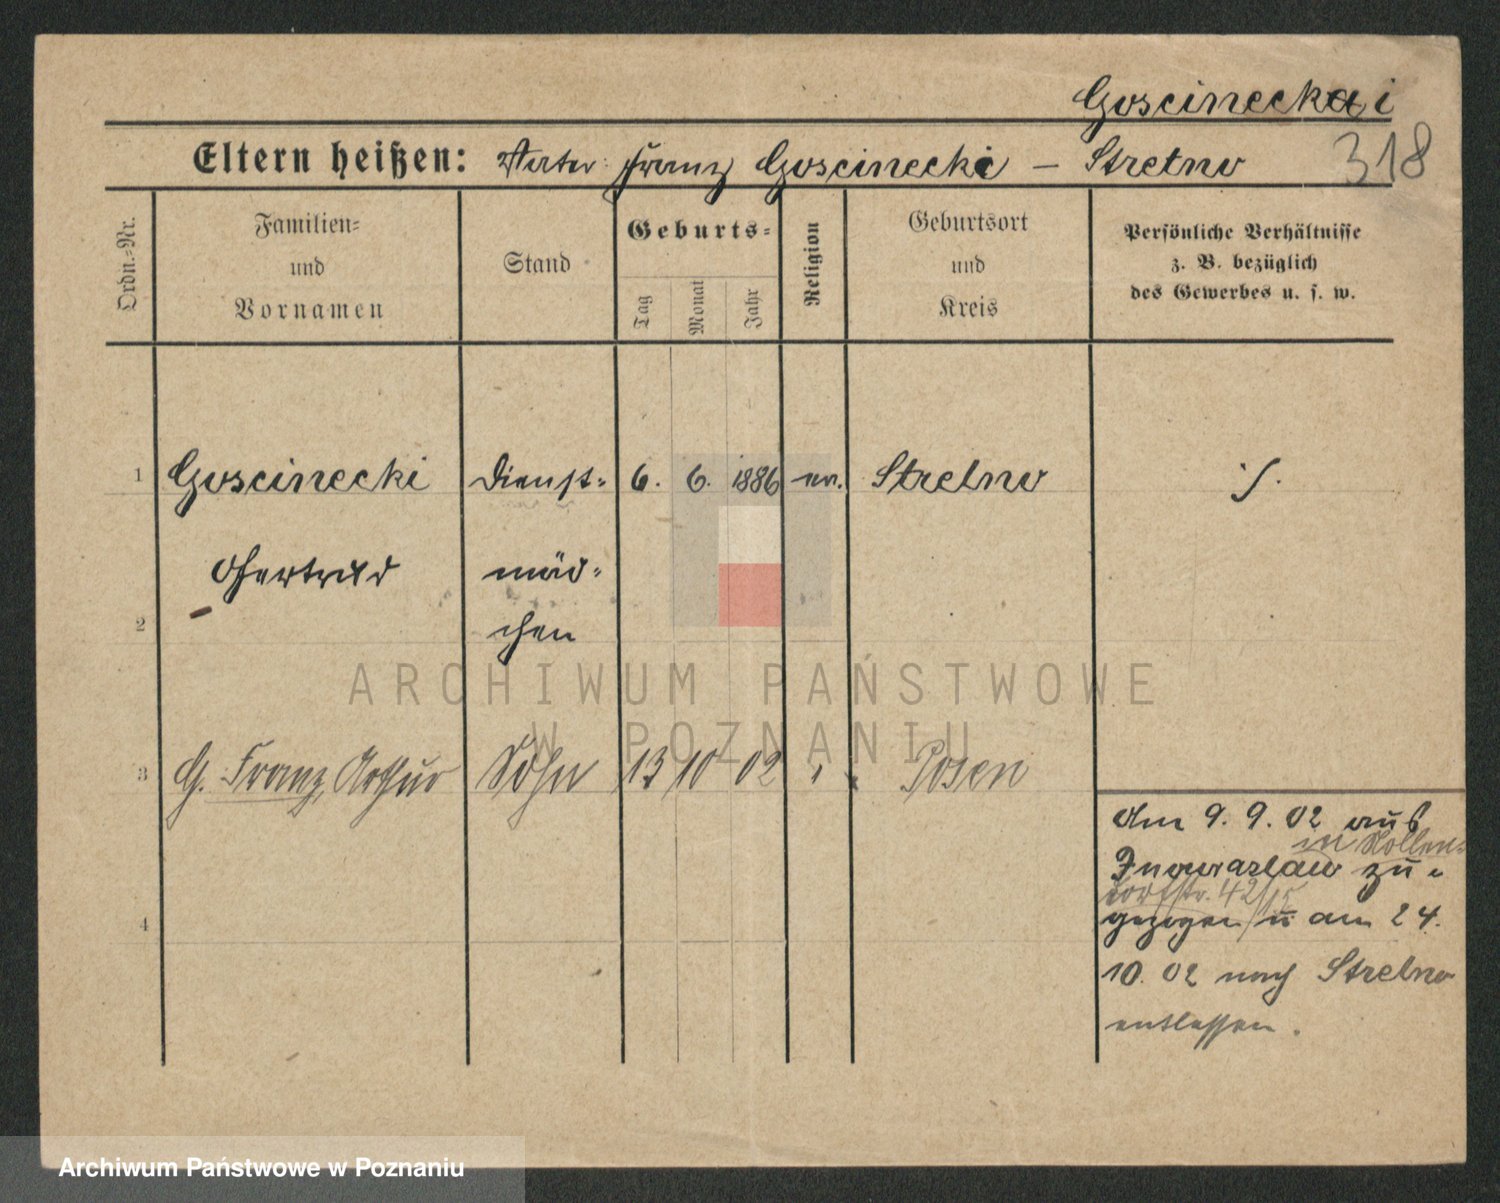 Goscinecki
Eltern heißen: Vater: Franz Goscinecki — Strelno 318
Ordn.-Nr.
Familien-
und
Vornamen
Stand
Geburts-
Tag
Monat
Jahr
Religion
Geburtsort
und
Kreis
Persönliche Verhältnisse
z. B. bezüglich
des Gewerbes u. s. w.
1 Goscinecki Dienst- 6. 6. 1886 ev. Strelno ./.
Gertrud mäd-
2 chen
3 G. Franz Arthur Sohn 13 10 02 Posen
4
Am 9. 9. 02 aus
in Kollen-
Inowrazlaw zu-
dorfstr. 42/15
gezogen u am 24.
10. 02 nach Strelno
entlassen.
ARCHIWUM PAŃSTWOWE
W POZNANIU
Archiwum Państwowe w Poznaniu